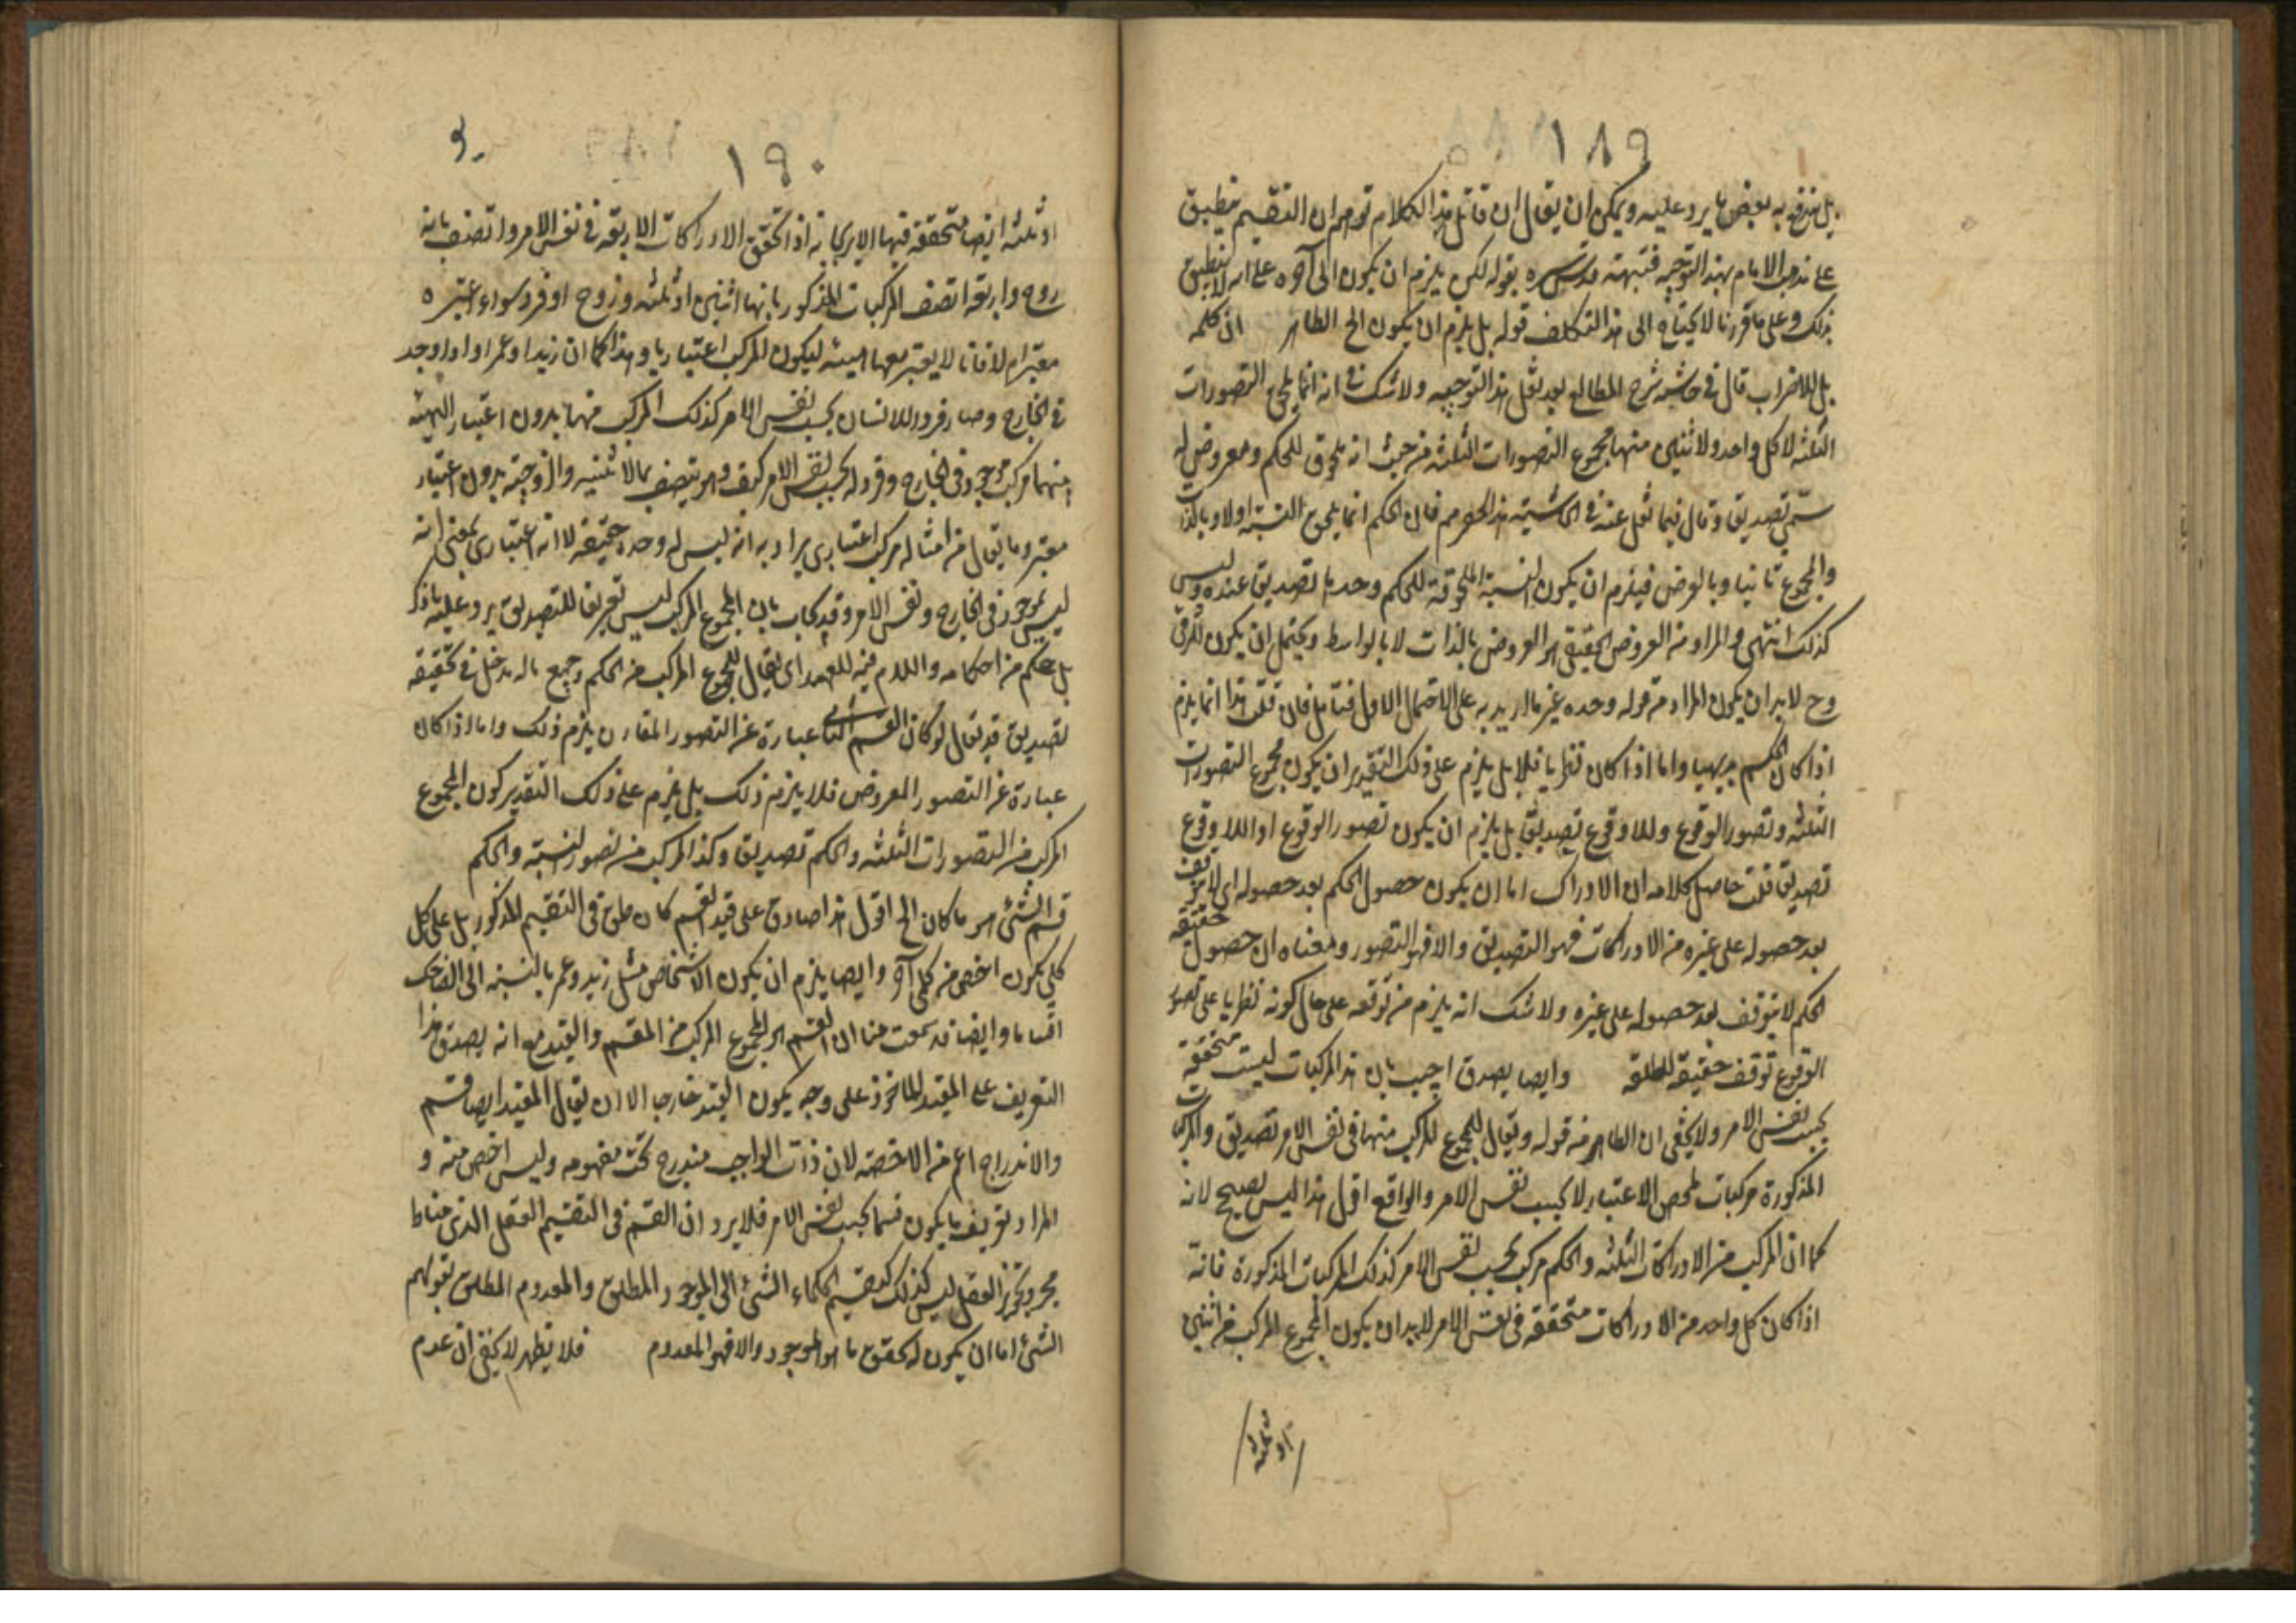 ١٨٩
بل يندفع به بعض ما يرد عليه ويمكن ان يقال ان قائل هذا الكلام توهم ان التقسيم ينطبق
على مذهب الامام بهذا التوجيه فنبهه قدس سره بقوله لكن يلزم ان يكون الى آخره على انه لا ينطبق
بذلك وعلى ما قررنا لا يحتاج الى هذا التكلف قوله بل يلزم ان يكون الخ الظاهر ان كلمه
بل للاضراب قال في حاشية شرح المطالع بعد نقل هذا التوجيه ولا شك في انه انما يلحق التصورات
الثلثه لا كل واحد ولا اثنين منها مجموع التصورات الثلثه من حيث انه ملحوق للحكم ومعروض له
سمى تصديق وقال فيما نقل عنه في الحاشية هذا الحصر مم فان الحكم انما يلحق النسبة اولا وبالذات
والمجموع ثانيا وبالعرض فيلزم ان يكون النسبة الملحوقة للحكم وحدها تصديق عنده وليس
كذلك انتهى والمراد من العروض الحقيقي هو العروض بالذات لا بالواسطه ويحتمل ان يكون للعرفى
وح لا بد ان يكون المراد من قوله وحده غير ما اريد به على الاحتمال الاول فتامل فان قلت هذا انما يلزم
اذا كان الحكم بديهيا واما اذا كان نظريا فلا بل يلزم على ذلك التقدير ان يكون مجموع التصورات
الثلثه وتصور الوقوع واللاوقوع تصديق بل يلزم ان يكون تصور الوقوع او اللاوقوع
تصديق قلت حاصل كلامه ان الادراك اما ان يكون حصول الحكم بعد حصوله اى لا يتوقف
بعد حصوله على غيره من الادراكات فهو التصديق والا فهو التصور ومعناه ان حصول حقيقة
الحكم لا يتوقف بعد حصوله على غيره ولا شك انه يلزم من توقفه على حال كونه نظريا على تصور
الوقوع توقف حقيقة المطلقه وايضا يصدق اجيب بان هذا المركبات ليست متحققة
بحسب نفس الامر ولا يخفى ان الظاهر من قوله ويقال للمجموع المركب منها في نفس الامر تصديق والمركبات
المذكورة مركبات بمحض الاعتبار لا بحسب نفس الامر والواقع اقول هذا ليس بصحيح لانه
كما ان المركب من الادراكات الثلثه والحكم مركب بحسب نفس الامر كذلك المركبات المذكورة فانه
اذا كان كل واحد من الادراكات متحققه في نفس الامر لا بد ان يكون المجموع المركب من اثنين
او ثلثه
١٩٠
او ثلثه ايضا متحققه فيها الا يرى انه اذا تحقق الادراكات الاربعه في نفس الامر واتصف بانه
زوج واربعه اتصف المركبات المذكور بانها اثنين او ثلثه وزوج او فرد سواء اعتبره
معتبر ام لا فانا لا يعتبر معها الهيئه ليكون المركب اعتباريا وهذا كما ان زيدا وعمرا اذا وجد
في الخارج وصار فردا للانسان بحسب نفس الامر كذلك المركب منهما بدون اعتبار الهيئه
منهما مركب موجود في الخارج وفرد له بحسب نفس الامر كيف وهو يتصف بالاثنينيه والزوجيه بدون اعتبار
معتبر وما يقال من امثاله مركب اعتبارى يراد به انه ليس له وحدة حقيقه لا انه اعتبارى بمعنى انه
ليس بموجود في الخارج ونفس الامر وقد يجاب بان المجموع المركب ليس تعريفا للتصديق يرد عليه ما ذكر
بل حكم من احكامه واللام فيه للعهد اى يقال للمجموع المركب من الحكم وجميع ما له مدخل في تحقيقه
تصديق قد يقال لو كان القسم الثانى عبارة عن التصور المقارن يلزم ذلك واما اذا كان
عبارة عن التصور المعروض فلا يلزم ذلك بل يلزم على ذلك التقدير كون المجموع
المركب من التصورات الثلثه والحكم تصديق وكذا المركب من تصور النسبة والحكم
قسم الشئ هو ما كان الخ اقول هذا صادق على قيد القسم كما في التقسيم المذكور بل على كل
كلى يكون اخص من كلى آخر وايضا يلزم ان يكون الاشخاص مثل زيد وعمر بالنسبه الى الضاحك
اقساما وايضا قد سمعت منا ان القسم هو المجموع المركب من المقسم والقيد مع انه يصدق هذا
التعريف على المقيد الماخوذ على وجه يكون القيد خارجا الا ان يقال المقيد ايضا قسم
والاندراج اعم من الاخصيه لان ذات الواجب مندرج تحت مفهومه وليس اخص منه و
المراد تعريف ما يكون قسما بحسب نفس الامر فلا يرد ان القسم في التقسيم العقل الذى مناط
مجرد تجويز العقل ليس كذلك كتقسيم الحكماء الشئ الى الموجود المطلق والمعدوم المطلق بقولهم
الشئ اما ان يكون له تحقق ما هو الموجود والا فهو المعدوم فلا يظهر لا يخفى ان عدم